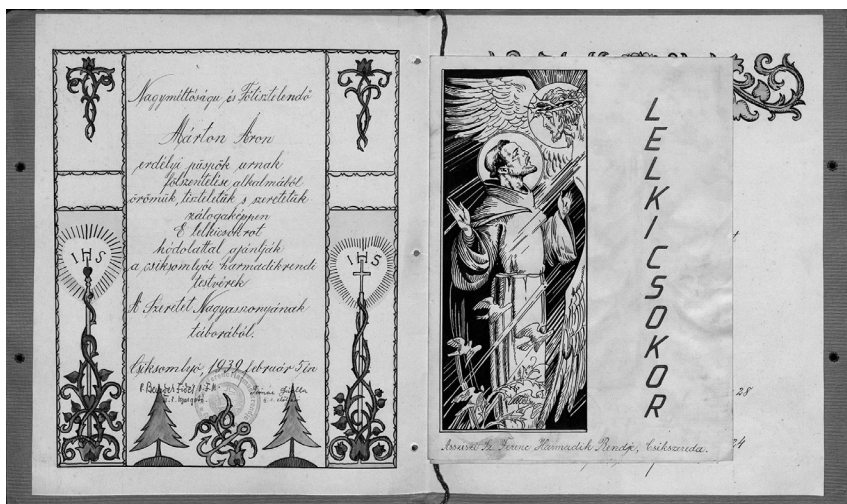 Nagyméltóságu és Főtisztelendő
Márton Áron
erdélyi püspök urnak
fölszentelése alkalmából
örömük, tiszteletük s szeretetük
zálogaképpen
E lelkicsokrot
hódolattal ajánlják
a csiksomlyói harmadikrendi
testvérek
A Szeretet Nagyasszonyának
táborából.
Csiksomlyó, 1939 február 5 én
IHS
IHS
LELKICSOKOR
Assisi Sz. Ferenc Harmadik Rendje, Csikszereda.
28
24